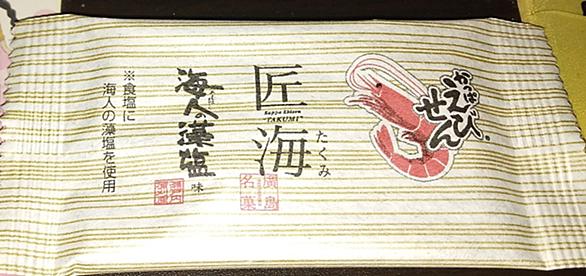 かっぱ
えびせん
匠海
たくみ
Kappa Ebisen
"TAKUMI"
廣島
名菓
海人の藻塩
味
※食塩に
海人の藻塩を使用